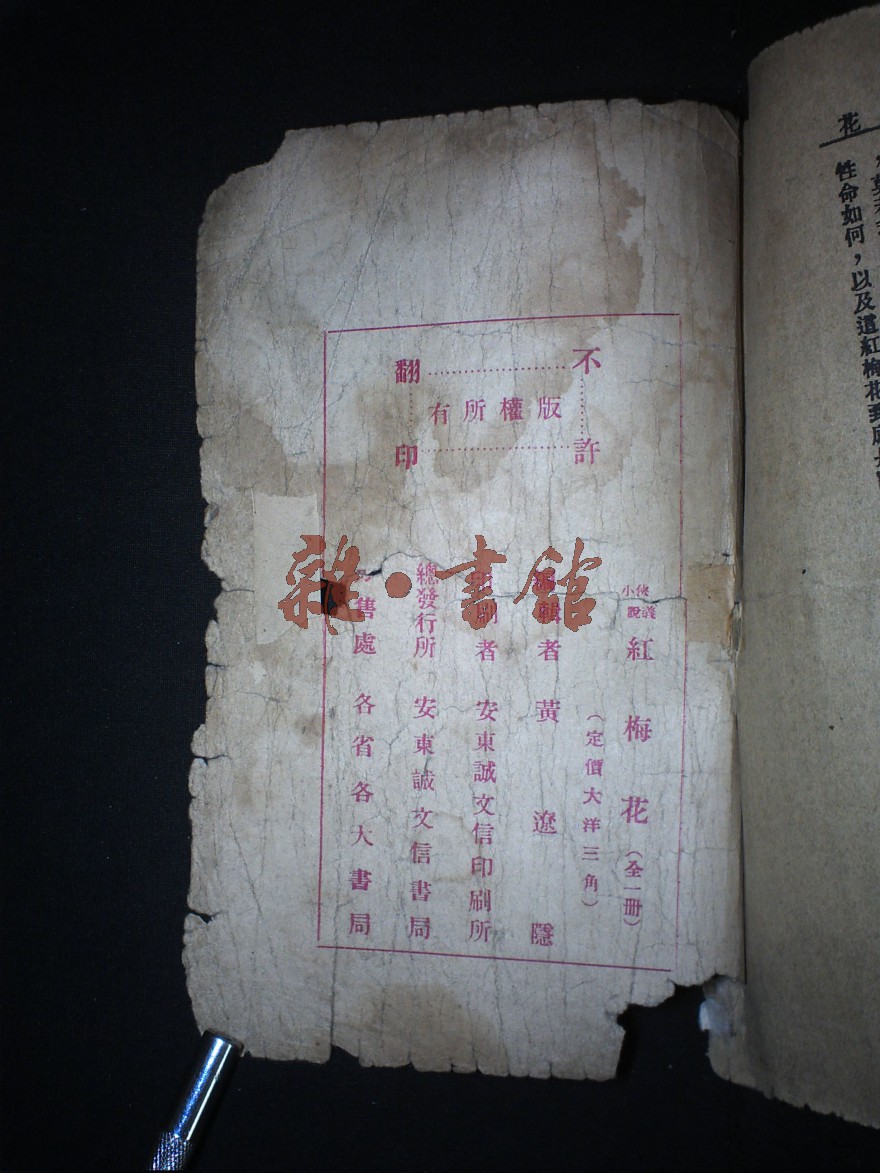 花
性命如何，以及這紅梅花到底
不許
翻印
版權所有
俠義小說
紅梅花（全一册）
（定價大洋三角）
編輯者 黃遼隱
印刷者 安東誠文信印刷所
總發行所 安東誠文信書局
售處 各省各大書局
雜·書館